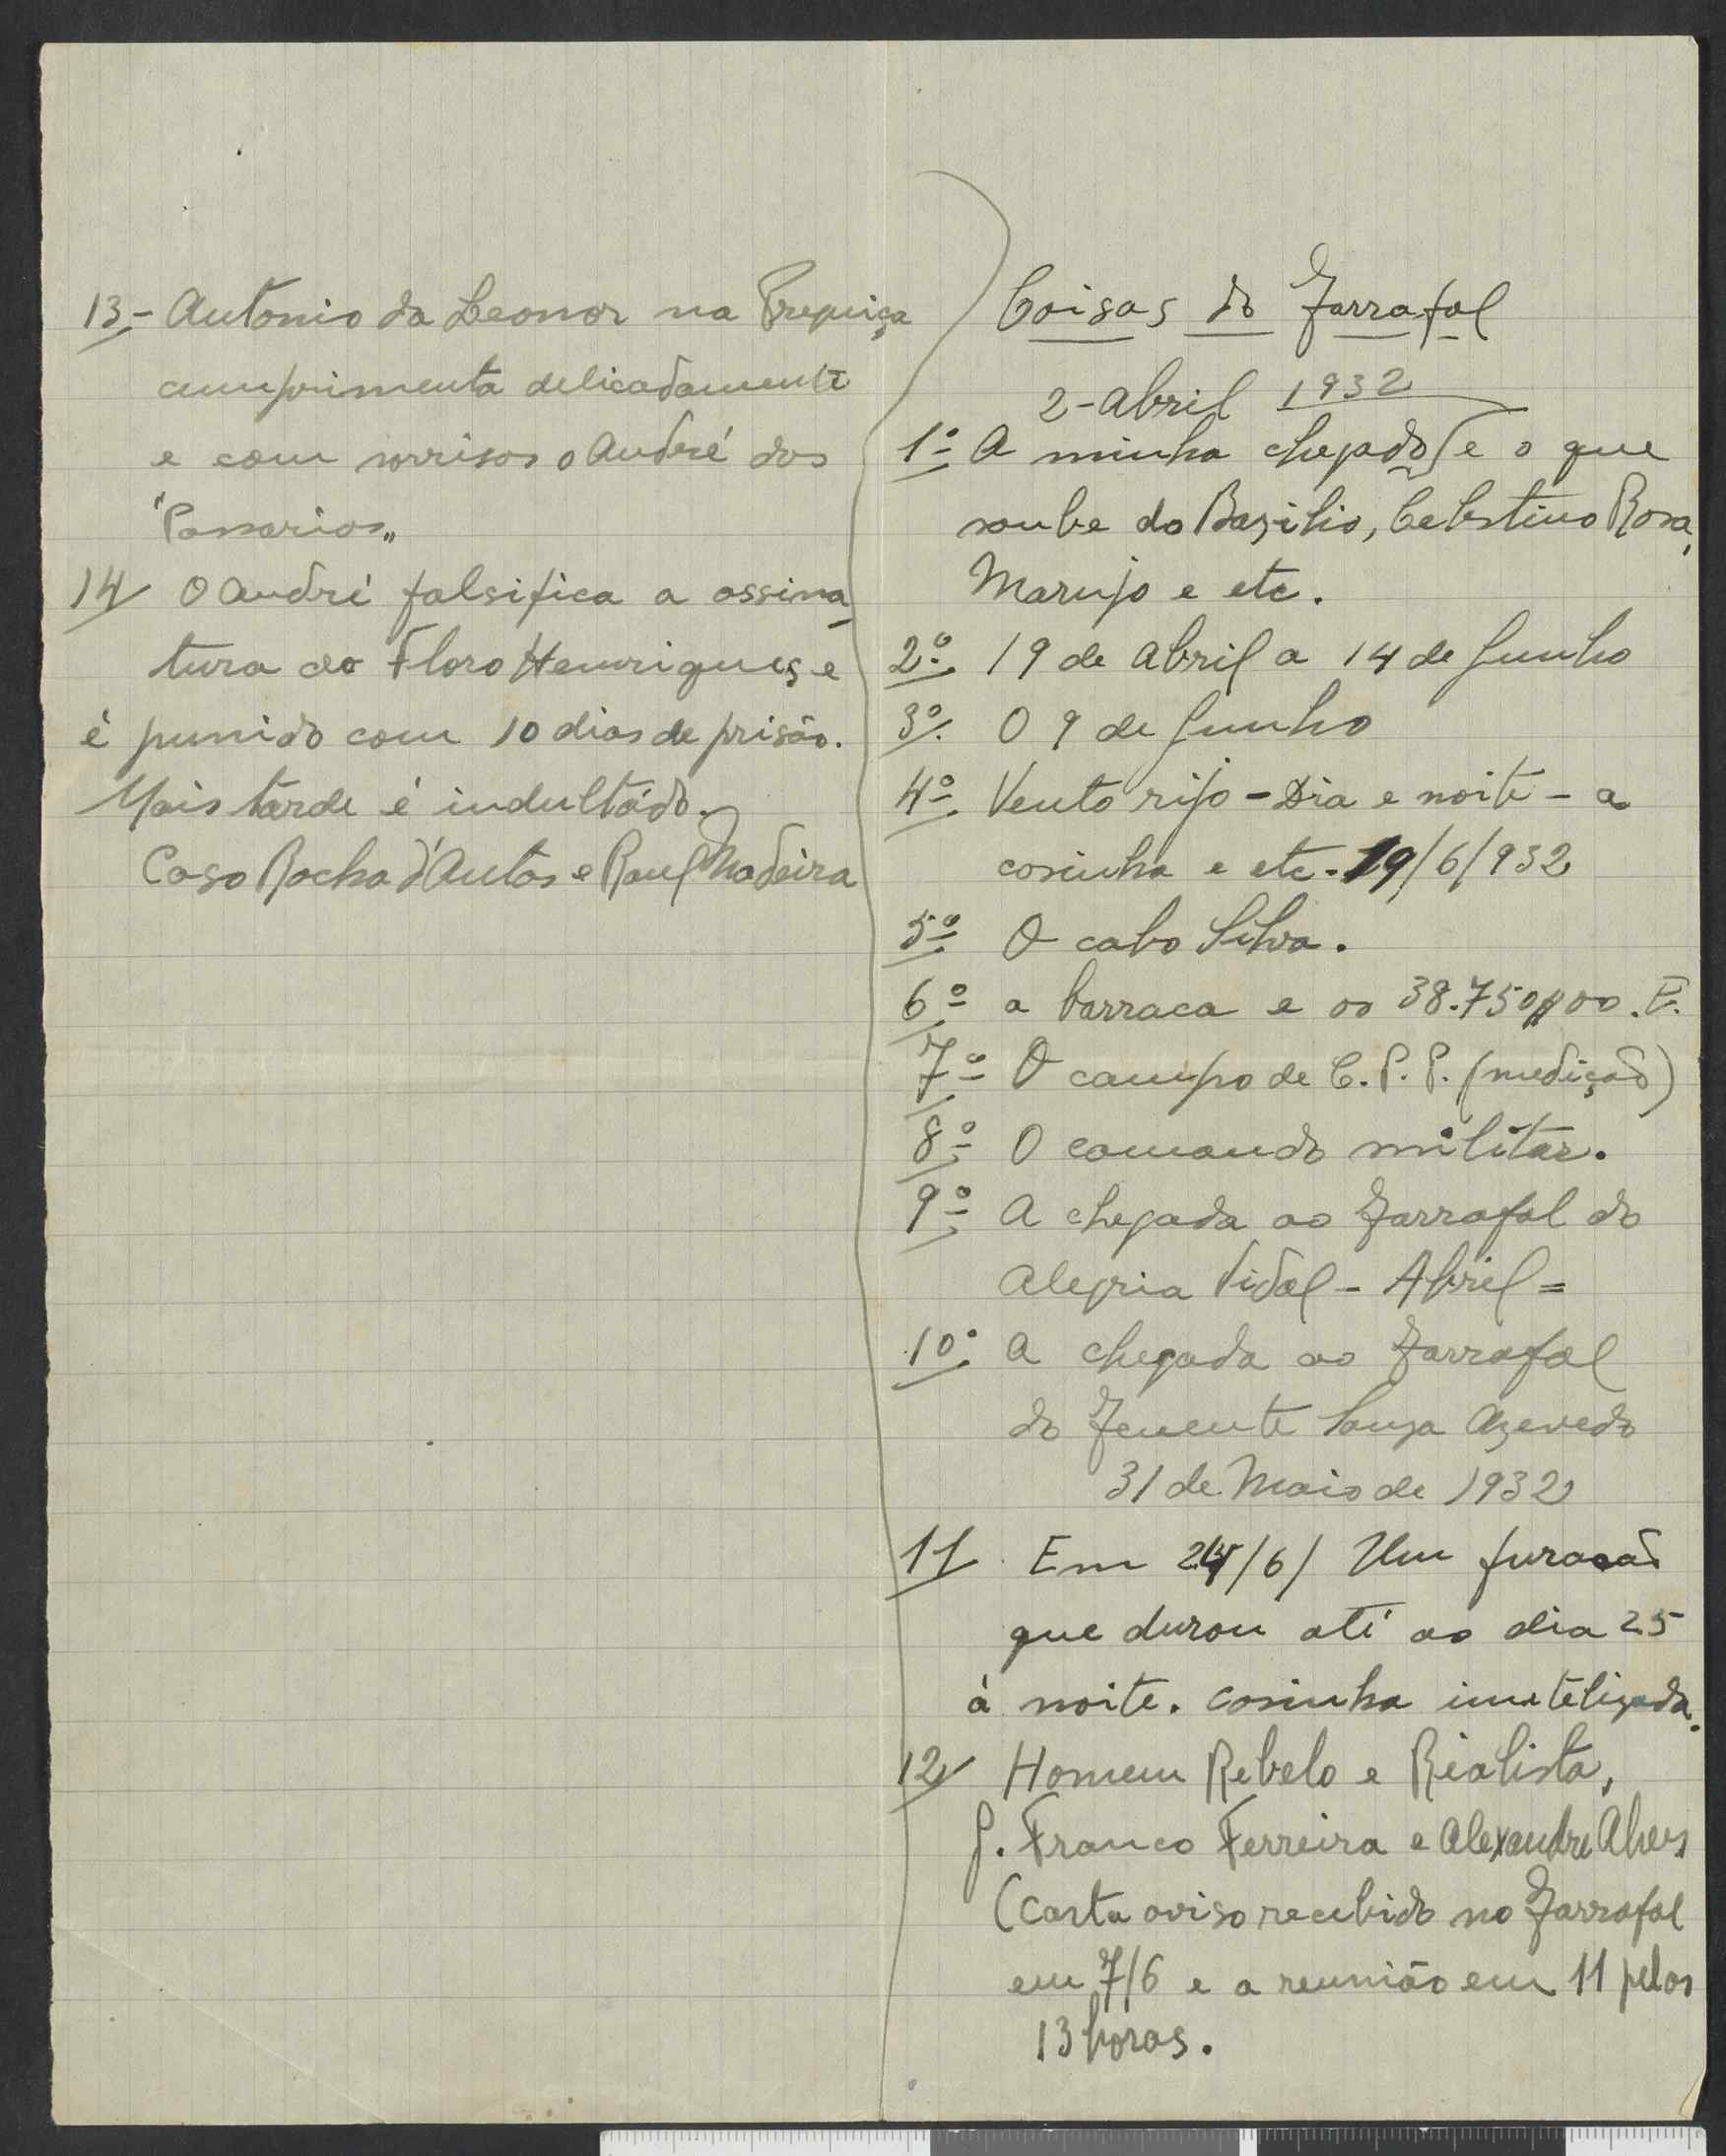 Coisas do Tarrafal
2-Abril 1932
1º A minha chegada e o que
soube do Bazilio, Celestino Rosa,
Marujo e etc.
2º. 19 de Abril a 14 de Junho
3º. O 9 de Junho
4º. Vento rijo - Dia e noite - a
cosinha e etc. 19/6/932
5º. O cabo Silva.
6º a barraca e os 38.750$00.
7º O campo de C. P. P. (medição)
8º O comando militar.
9º A chegada ao Tarrafal do
Alegria Vidal - Abril =
10º. A chegada ao Tarrafal
do Tenente Souza Azevedo
31 de Maio de 1932
11 Em 24/6/ Um furacão
que durou até ao dia 25
à noite. Cosinha inutelizada.
12 Homem Rebelo e Rialista,
J. Franco Ferreira e Alexandre Alves
(Carta aviso recebido no Tarrafal
em 7/6 e a reunião em 11 pelas
13 horas.
13- Antonio da Leonor na Preguiça
cumprimenta delicadamente
e com sorrisos o André dos
14 O André falsifica a assina
tura do Floro Henriques e
é punido com 10 dias de prisão.
Mais tarde é indultádo.
Caso Rocha d'Antas e Raul Madeira